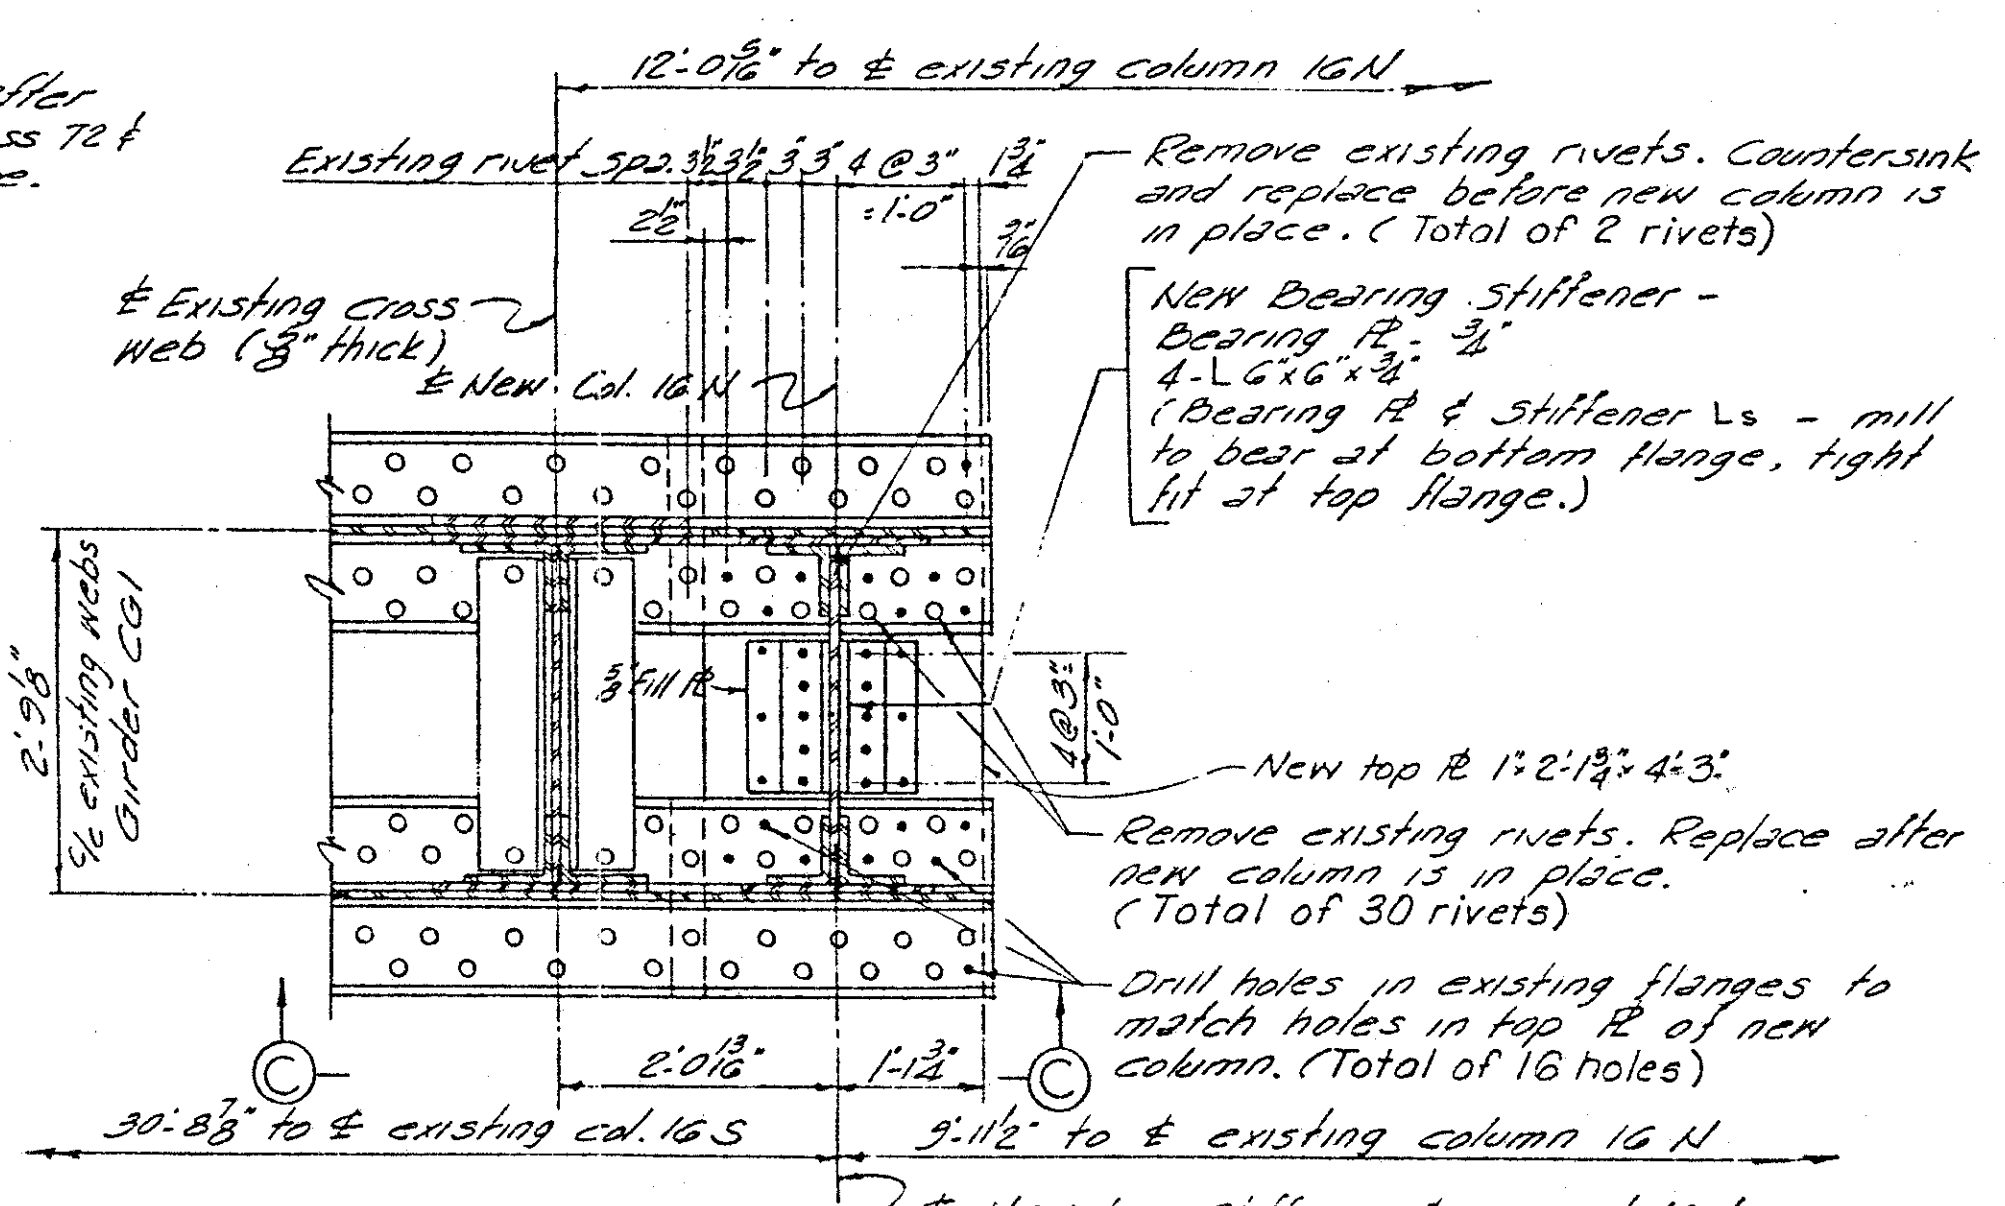 12'-0 5/16" to ℄ existing column 16N
after
ss 72 &
e.
Existing rivet spa. 3½" 3½" 3" 3" 4 @ 3" 1¾"
= 1'-0"
2½"
Remove existing rivets. Countersink
and replace before new column is
in place. (Total of 2 rivets)
℄ Existing cross
web (⅝" thick)
℄ New Col. 16 N
New Bearing Stiffener -
Bearing ℙL - ¾"
4-L 6"x6"x¾"
(Bearing ℙL & Stiffener Ls - mill
to bear at bottom flange, tight
fit at top flange.)
2'-9⅛"
c/c existing webs
Girder CG1
⅝" Fill ℙL
4@3"=
1'-0"
New top ℙL 1"x2'-1¾"x4'-3"
Remove existing rivets. Replace after
new column is in place.
(Total of 30 rivets)
Drill holes in existing flanges to
match holes in top ℙL of new
column. (Total of 16 holes)
C
2'-0 13/16"
1'-1¾"
C
30'-8⅞" to ℄ existing col. 16 S
9'-11½" to ℄ existing column 16 N